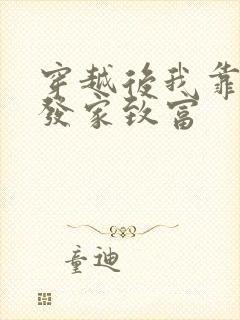 穿越後我靠
發家致富
童迪